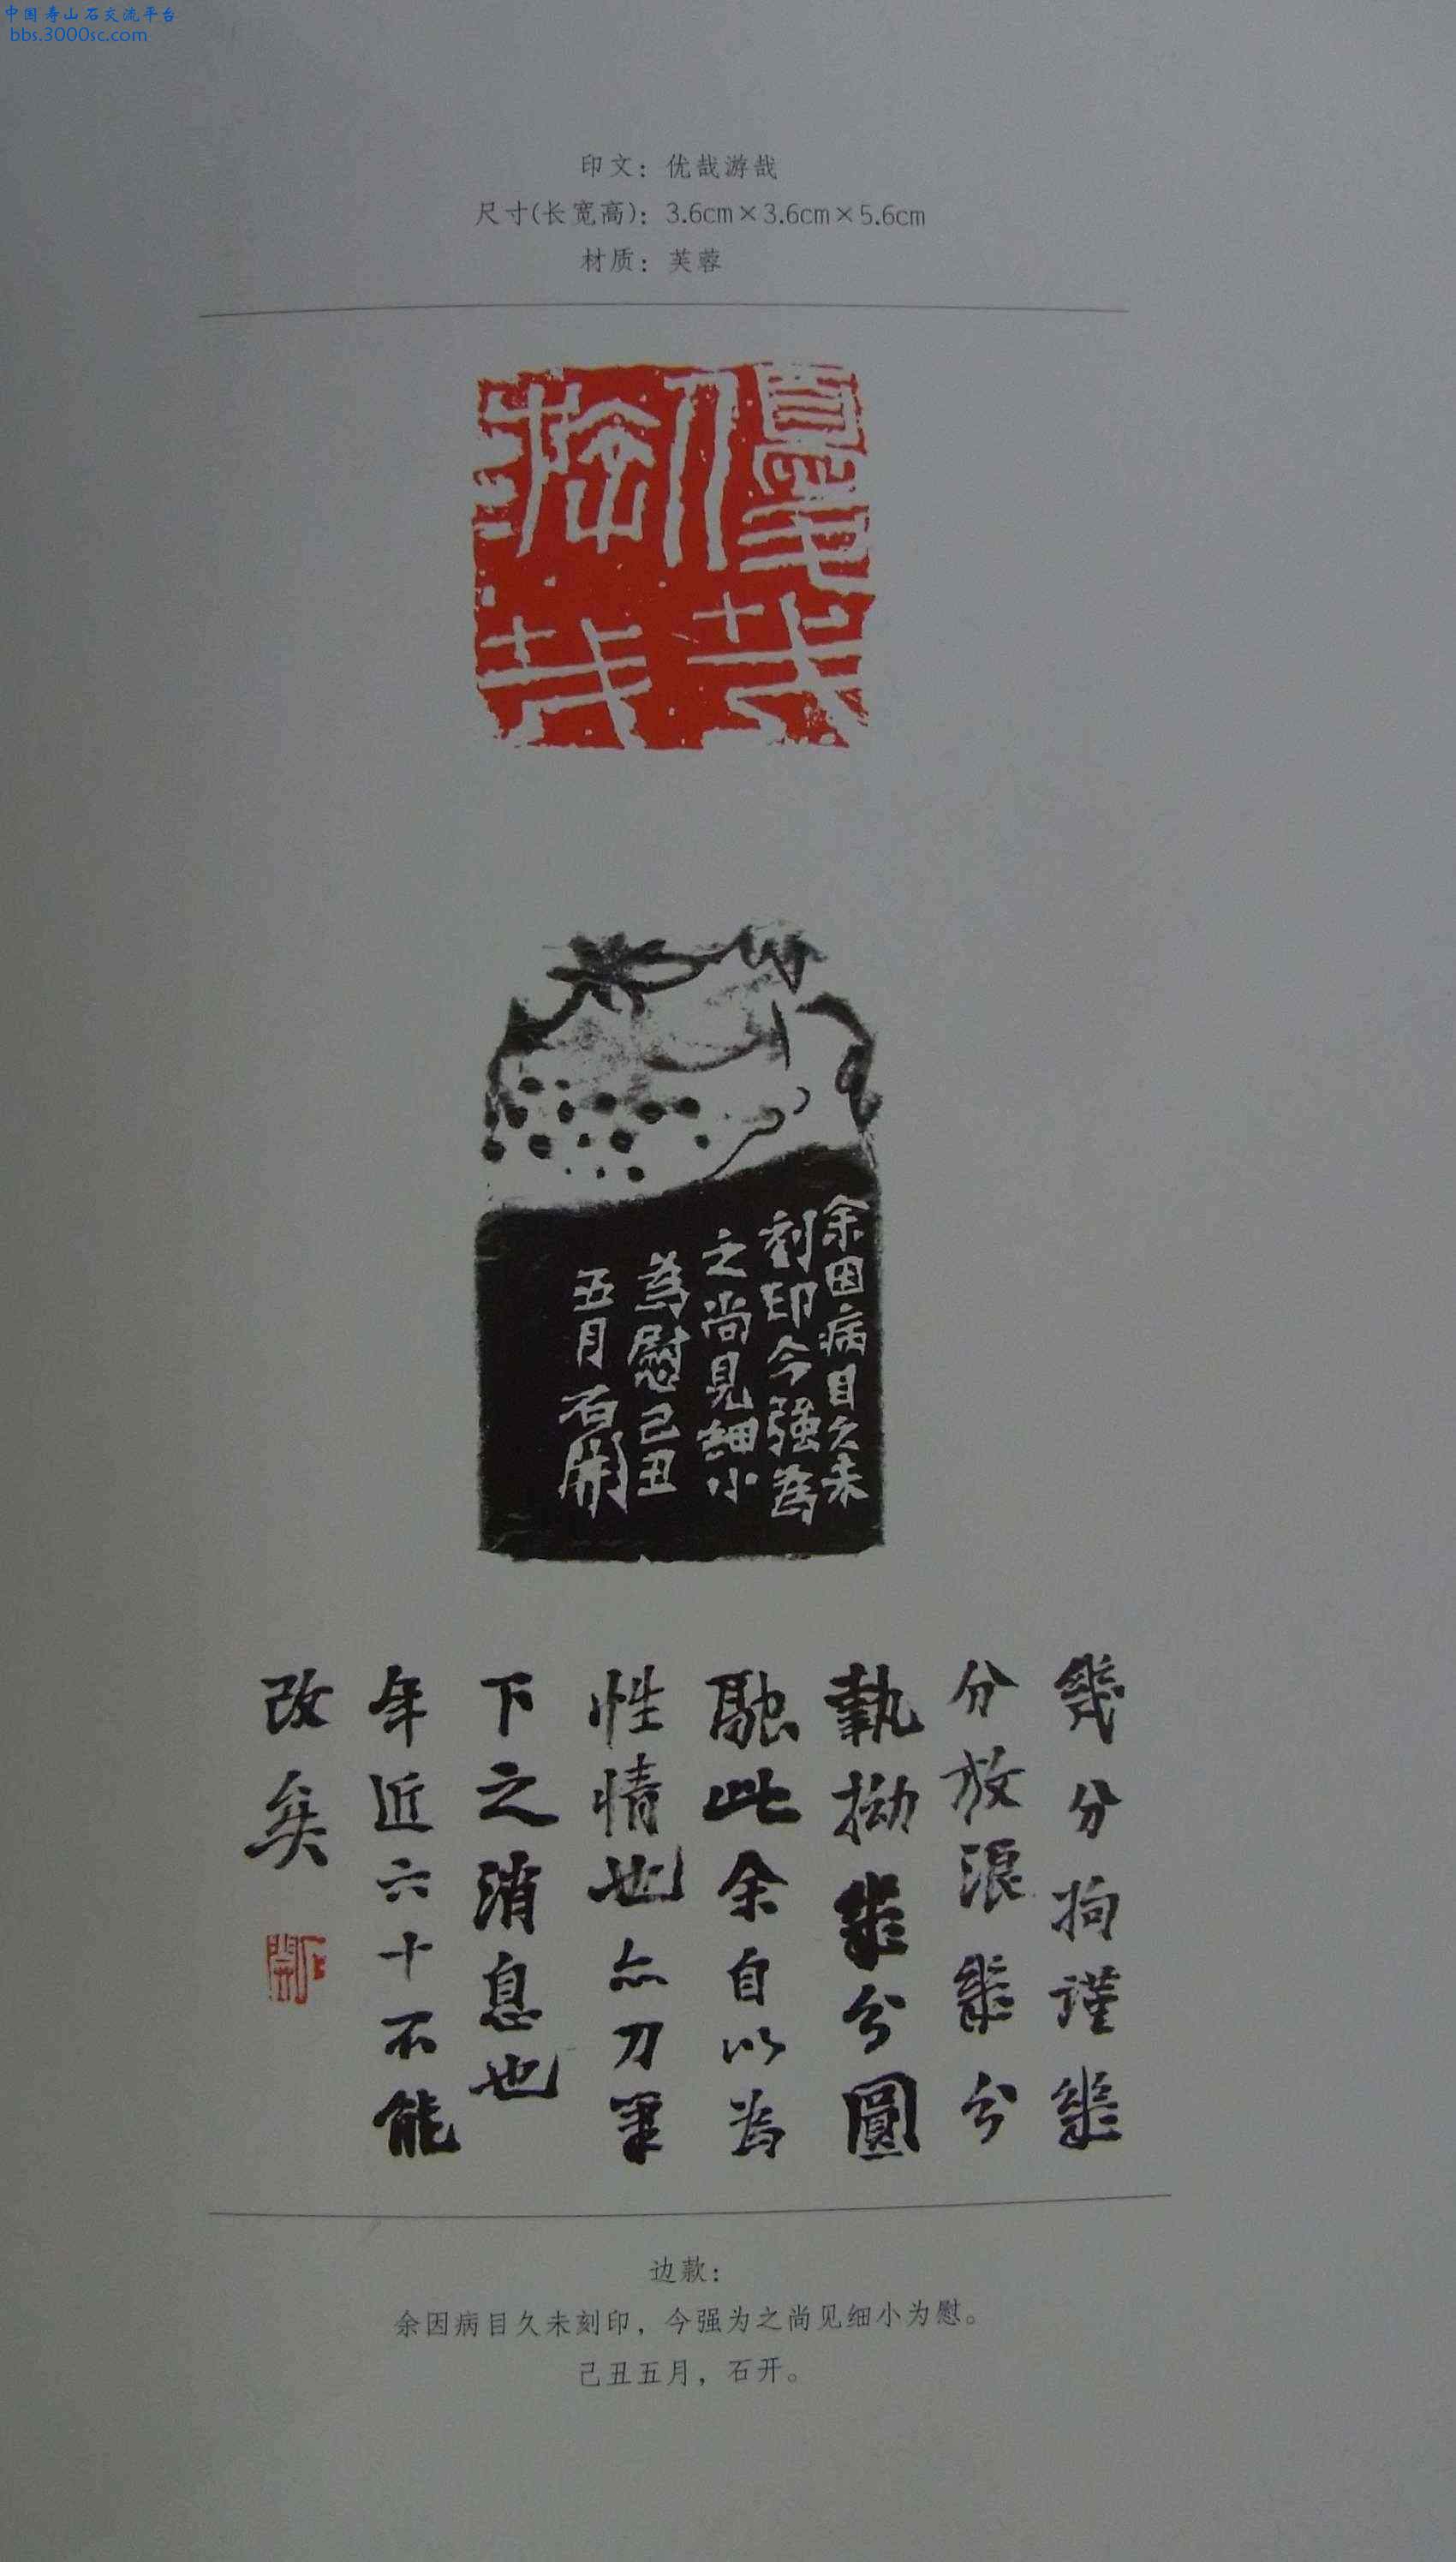 中国寿山石交流平台
bbs.3000sc.com
印文：优哉游哉
尺寸(长宽高)：3.6cm×3.6cm×5.6cm
材质：芙蓉
優哉
游哉
余因病目久未
刻印今強為
之尚見細小
為慰己丑
五月石開
幾分拘謹幾
分放浪幾分
執拗幾分圓
融此余自以為
性情也亦刀筆
下之消息也
年近六十不能
改矣
石開
边款：
余因病目久未刻印，今强为之尚见细小为慰。
己丑五月，石开。